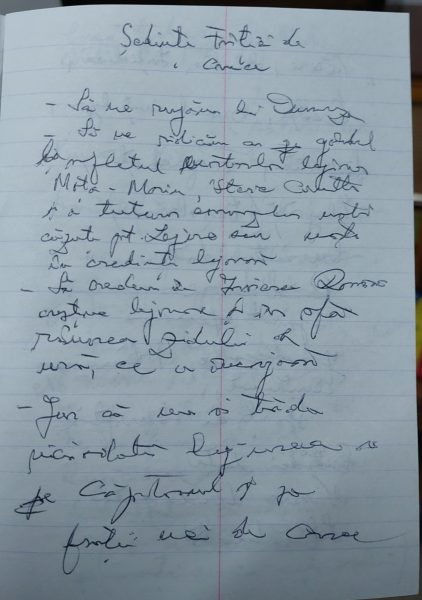 Ședința Frăției de
Cruce
- Să ne rugăm lui Dumnezeu
- Să ne ridicăm cu gândul
la sufletul martirilor legionari
Moța - Marin, Sterie Ciumetti
și a tuturor camarazilor noștri
căzuți pt. Legiune sau morți
în credința legionară
- Să credem în Învierea României
creștine legionare și în
zidului de
ură, ce ne
- Jur că nu voi trăda
niciodată Legiunea și
pe Căpitanul și pe
frații mei de cruce